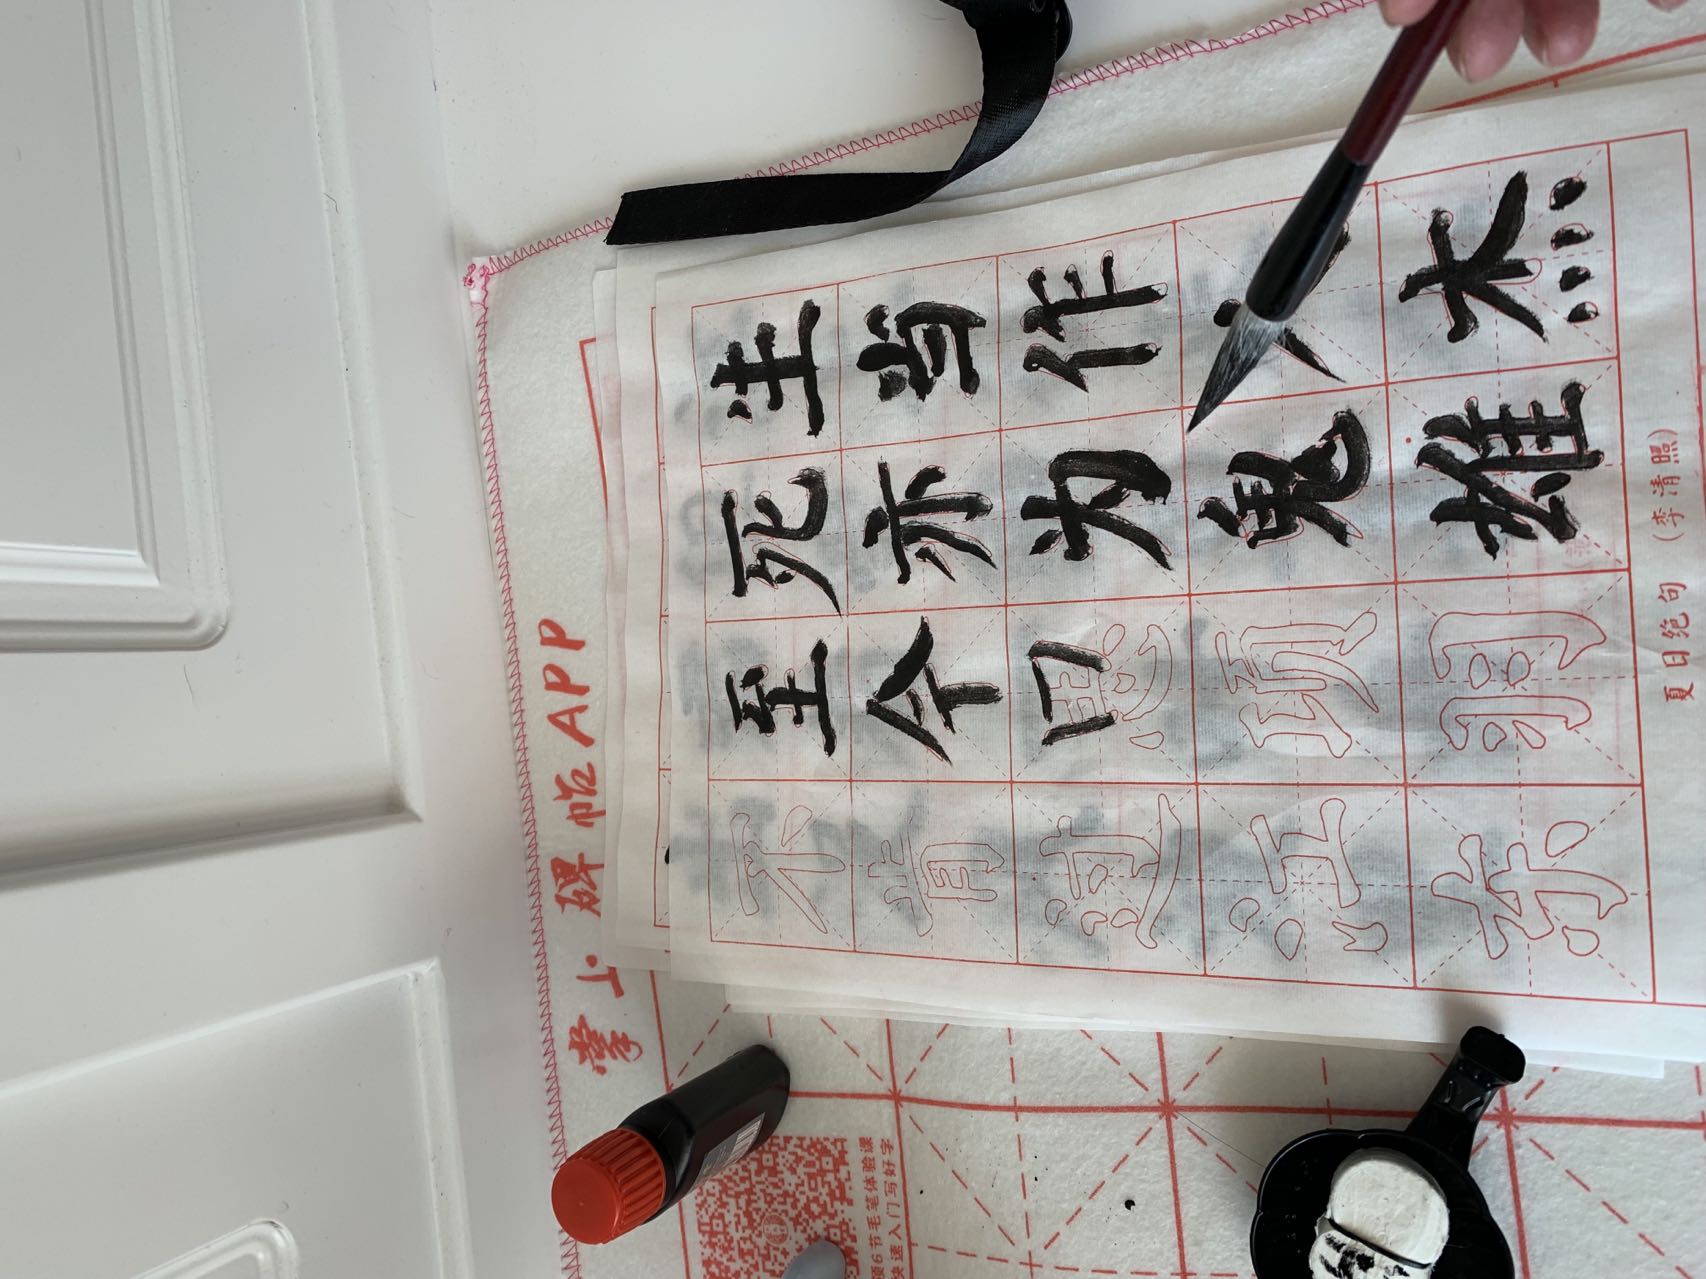 掌上碑帖APP
领6节毛笔体验课
快速入门写好字
生当作人杰
死亦为鬼雄
至今思项羽
不肯过江东
夏日绝句 (李清照)